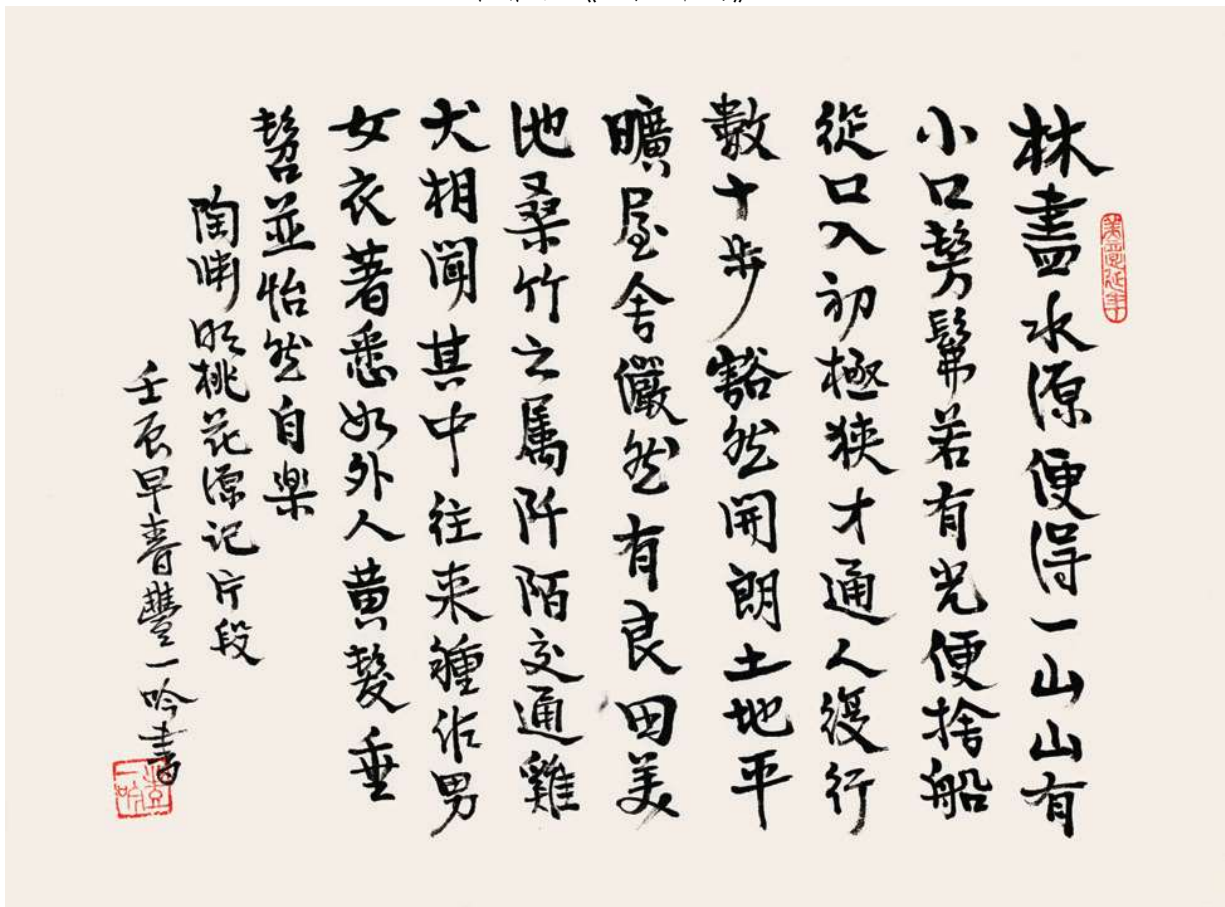 林盡水源便得一山山有
小口髣髴若有光便捨船
從口入初極狹才通人復行
數十步豁然開朗土地平
曠屋舍儼然有良田美
池桑竹之属阡陌交通雞
犬相聞其中往来種作男
女衣著悉如外人黄髮垂
髫並怡然自樂
陶渊明桃花源记片段
壬辰早春豐一吟書